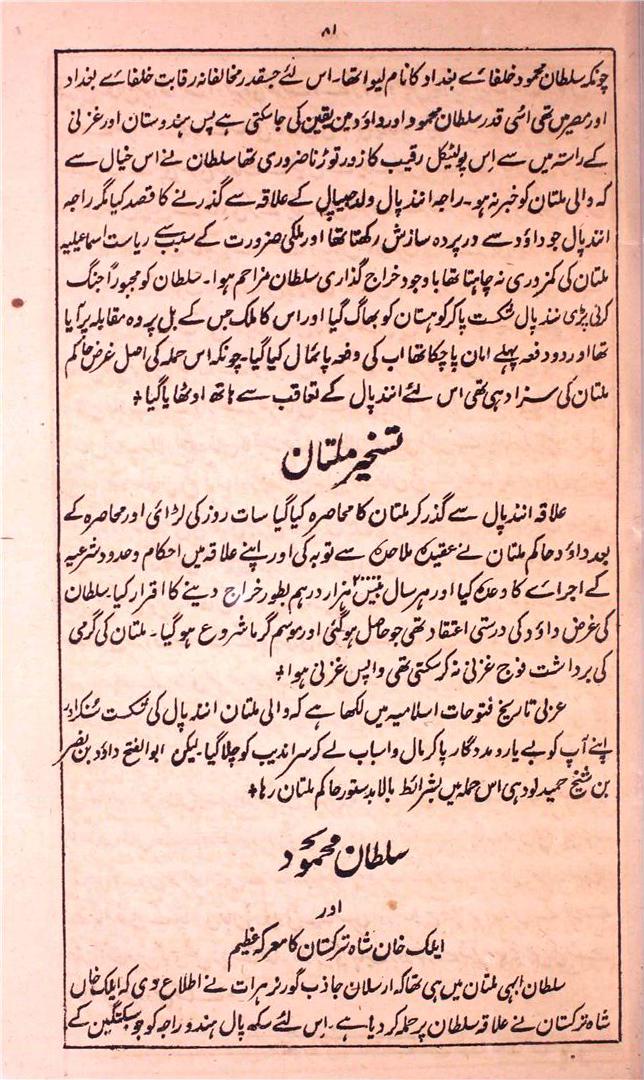 ۸۱
چونکہ سلطان محمود خلفائے بغداد کا نام لیوا تھا۔ اس لئے جسقدر مخالفانہ رقابت خلفائے بغداد
اور مصر میں تھی اسی قدر سلطان محمود اور داؤد مین یقین کی جا سکتی ہے پس ہندوستان اور غزنی
کے راستہ میں سے اِس پولٹیکل رقیب کا زور توڑنا ضروری تھا سلطان نے اس خیال سے
کہ والی ملتان کو خبر نہ ہو۔ راجہ انند پال ولد جیپال کے علاقہ سے گذرنے کا قصد کیا مگر راجہ
انند پال جو داؤد سے در پردہ سازش رکھتا تھا اور ملکی ضرورت کے سبب سے ریاست اسماعیلیہ
ملتان کی کمزوری نہ چاہتا تھا باوجود خراج گذاری سلطان مزاحم ہوا۔ سلطان کو مجبوراً جنگ
کرنی پڑی نند پال شکست پا کر کوہستان کو بھاگ گیا اور اس کا ملک جس کے بل پر وہ مقابلہ پر آیا
تھا اور دو دفعہ پہلے امان پا چکا تھا اب کی دفعہ پائمال کیا گیا۔ چونکہ اس حملہ کی اصل غرض حاکم
ملتان کی سزا دہی تھی اس لئے انند پال کے تعاقب سے ہاتھ اوٹھا یا گیا +
تسخیر ملتان
علاقہ انند پال سے گذر کر ملتان کا محاصرہ کیا گیا سات روز کی لڑائی اور محاصرہ کے
بعد داؤد حاکم ملتان نے عقیدہ ملاحدہ سے توبہ کی اور اپنے علاقہ میں احکام وحدود شرعیہ
کے اجرائے کا وعدہ کیا اور ہر سال بیس ۲۰۰۰۰ ہزار درہم بطور خراج دینے کا اقرار کیا۔ سلطان
کی غرض داؤد کی درستی اعتقاد تھی جو حاصل ہو گئی اور موسم گرما شروع ہو گیا۔ ملتان کی گرمی
کی برداشت فوج غزنی نہ کر سکتی تھی واپس غزنی ہوا +
عربی تاریخ فتوحات اسلامیہ میں لکھا ہے کہ والی ملتان انند پال کی شکست سُنکر اور
اپنے آپ کو بے یار و مددگار پا کر مال و اسباب لے کر سراندیب کو چلا گیا۔ لیکن ابوالفتح داؤد بن نصیر
بن شیخ حمید لودہی اس حملہ میں بشرائط بالا بدستور حاکم ملتان رہا +
سلطان محمود
اور
ایلک خان شاہ ترکستان کا معرکہ عظیم
سلطان ابہی ملتان میں ہی تھا کہ ارسلان جاذب گورنر ہرات نے اطلاع دی کہ ایلک خاں
شاہ ترکستان نے علاقہ سلطان پر حملہ کر دیا ہے۔ اِس لئے سکھ پال ہندو راجہ کو جو سبکتگین کے